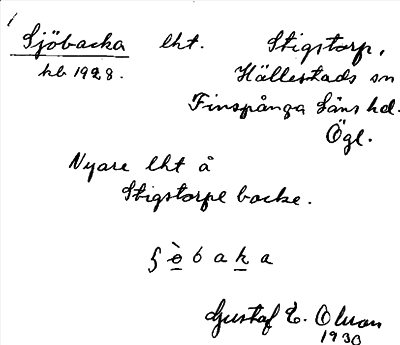 Sjöbacka lht. Stigstorp,
kb 1928. Hällestads sn
Finspånga läns hd.
Ögl.
Nyare lht å
Stigstorpe backe.
Gustaf E. Olson
1930